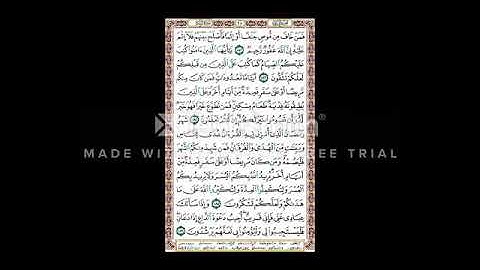 فَمَنْ خَافَ مِن مُّوصٍ جَنَفًا أَوْ إِثْمًا فَأَصْلَحَ بَيْنَهُمْ فَلَا إِثْمَ
عَلَيْهِ إِنَّ اللَّهَ غَفُورٌ رَّحِيمٌ يَٰأَيُّهَا الَّذِينَ ءَامَنُوا كُتِبَ
عَلَيْكُمُ الصِّيَامُ كَمَا كُتِبَ عَلَى الَّذِينَ مِن قَبْلِكُمْ
لَعَلَّكُمْ تَتَّقُونَ أَيَّامًا مَّعْدُودَٰتٍ فَمَن كَانَ مِنكُم
مَّرِيضًا أَوْ عَلَىٰ سَفَرٍ فَعِدَّةٌ مِّنْ أَيَّامٍ أُخَرَ وَعَلَى الَّذِينَ
يُطِيقُونَهُ فِدْيَةٌ طَعَامُ مِسْكِينٍ فَمَن تَطَوَّعَ خَيْرًا فَهُوَ خَيْرٌ
لَّهُ وَأَن تَصُومُوا خَيْرٌ لَّكُمْ إِن كُنتُمْ تَعْلَمُونَ شَهْرُ
رَمَضَانَ الَّذِي أُنزِلَ فِيهِ الْقُرْءَانُ هُدًى لِّلنَّاسِ
وَبَيِّنَٰتٍ مِّنَ الْهُدَىٰ وَالْفُرْقَانِ فَمَن شَهِدَ مِنكُمُ الشَّهْرَ
MADE WI EE TRIAL
فَلْيَصُمْهُ وَمَن كَانَ مَرِيضًا أَوْ عَلَىٰ سَفَرٍ فَعِدَّةٌ مِّنْ
أَيَّامٍ أُخَرَ يُرِيدُ اللَّهُ بِكُمُ الْيُسْرَ وَلَا يُرِيدُ بِكُمُ
الْعُسْرَ وَلِتُكْمِلُوا الْعِدَّةَ وَلِتُكَبِّرُوا اللَّهَ عَلَىٰ مَا
هَدَىٰكُمْ وَلَعَلَّكُمْ تَشْكُرُونَ وَإِذَا سَأَلَكَ
عِبَادِي عَنِّي فَإِنِّي قَرِيبٌ أُجِيبُ دَعْوَةَ الدَّاعِ إِذَا دَعَانِ
فَلْيَسْتَجِيبُوا لِي وَلْيُؤْمِنُوا بِي لَعَلَّهُمْ يَرْشُدُونَ